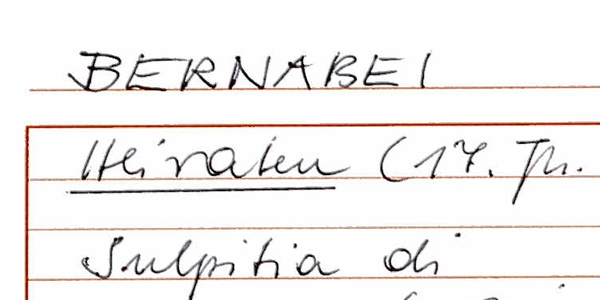 BERNABEI
Heiraten (17. Jh.
Sulpitia di